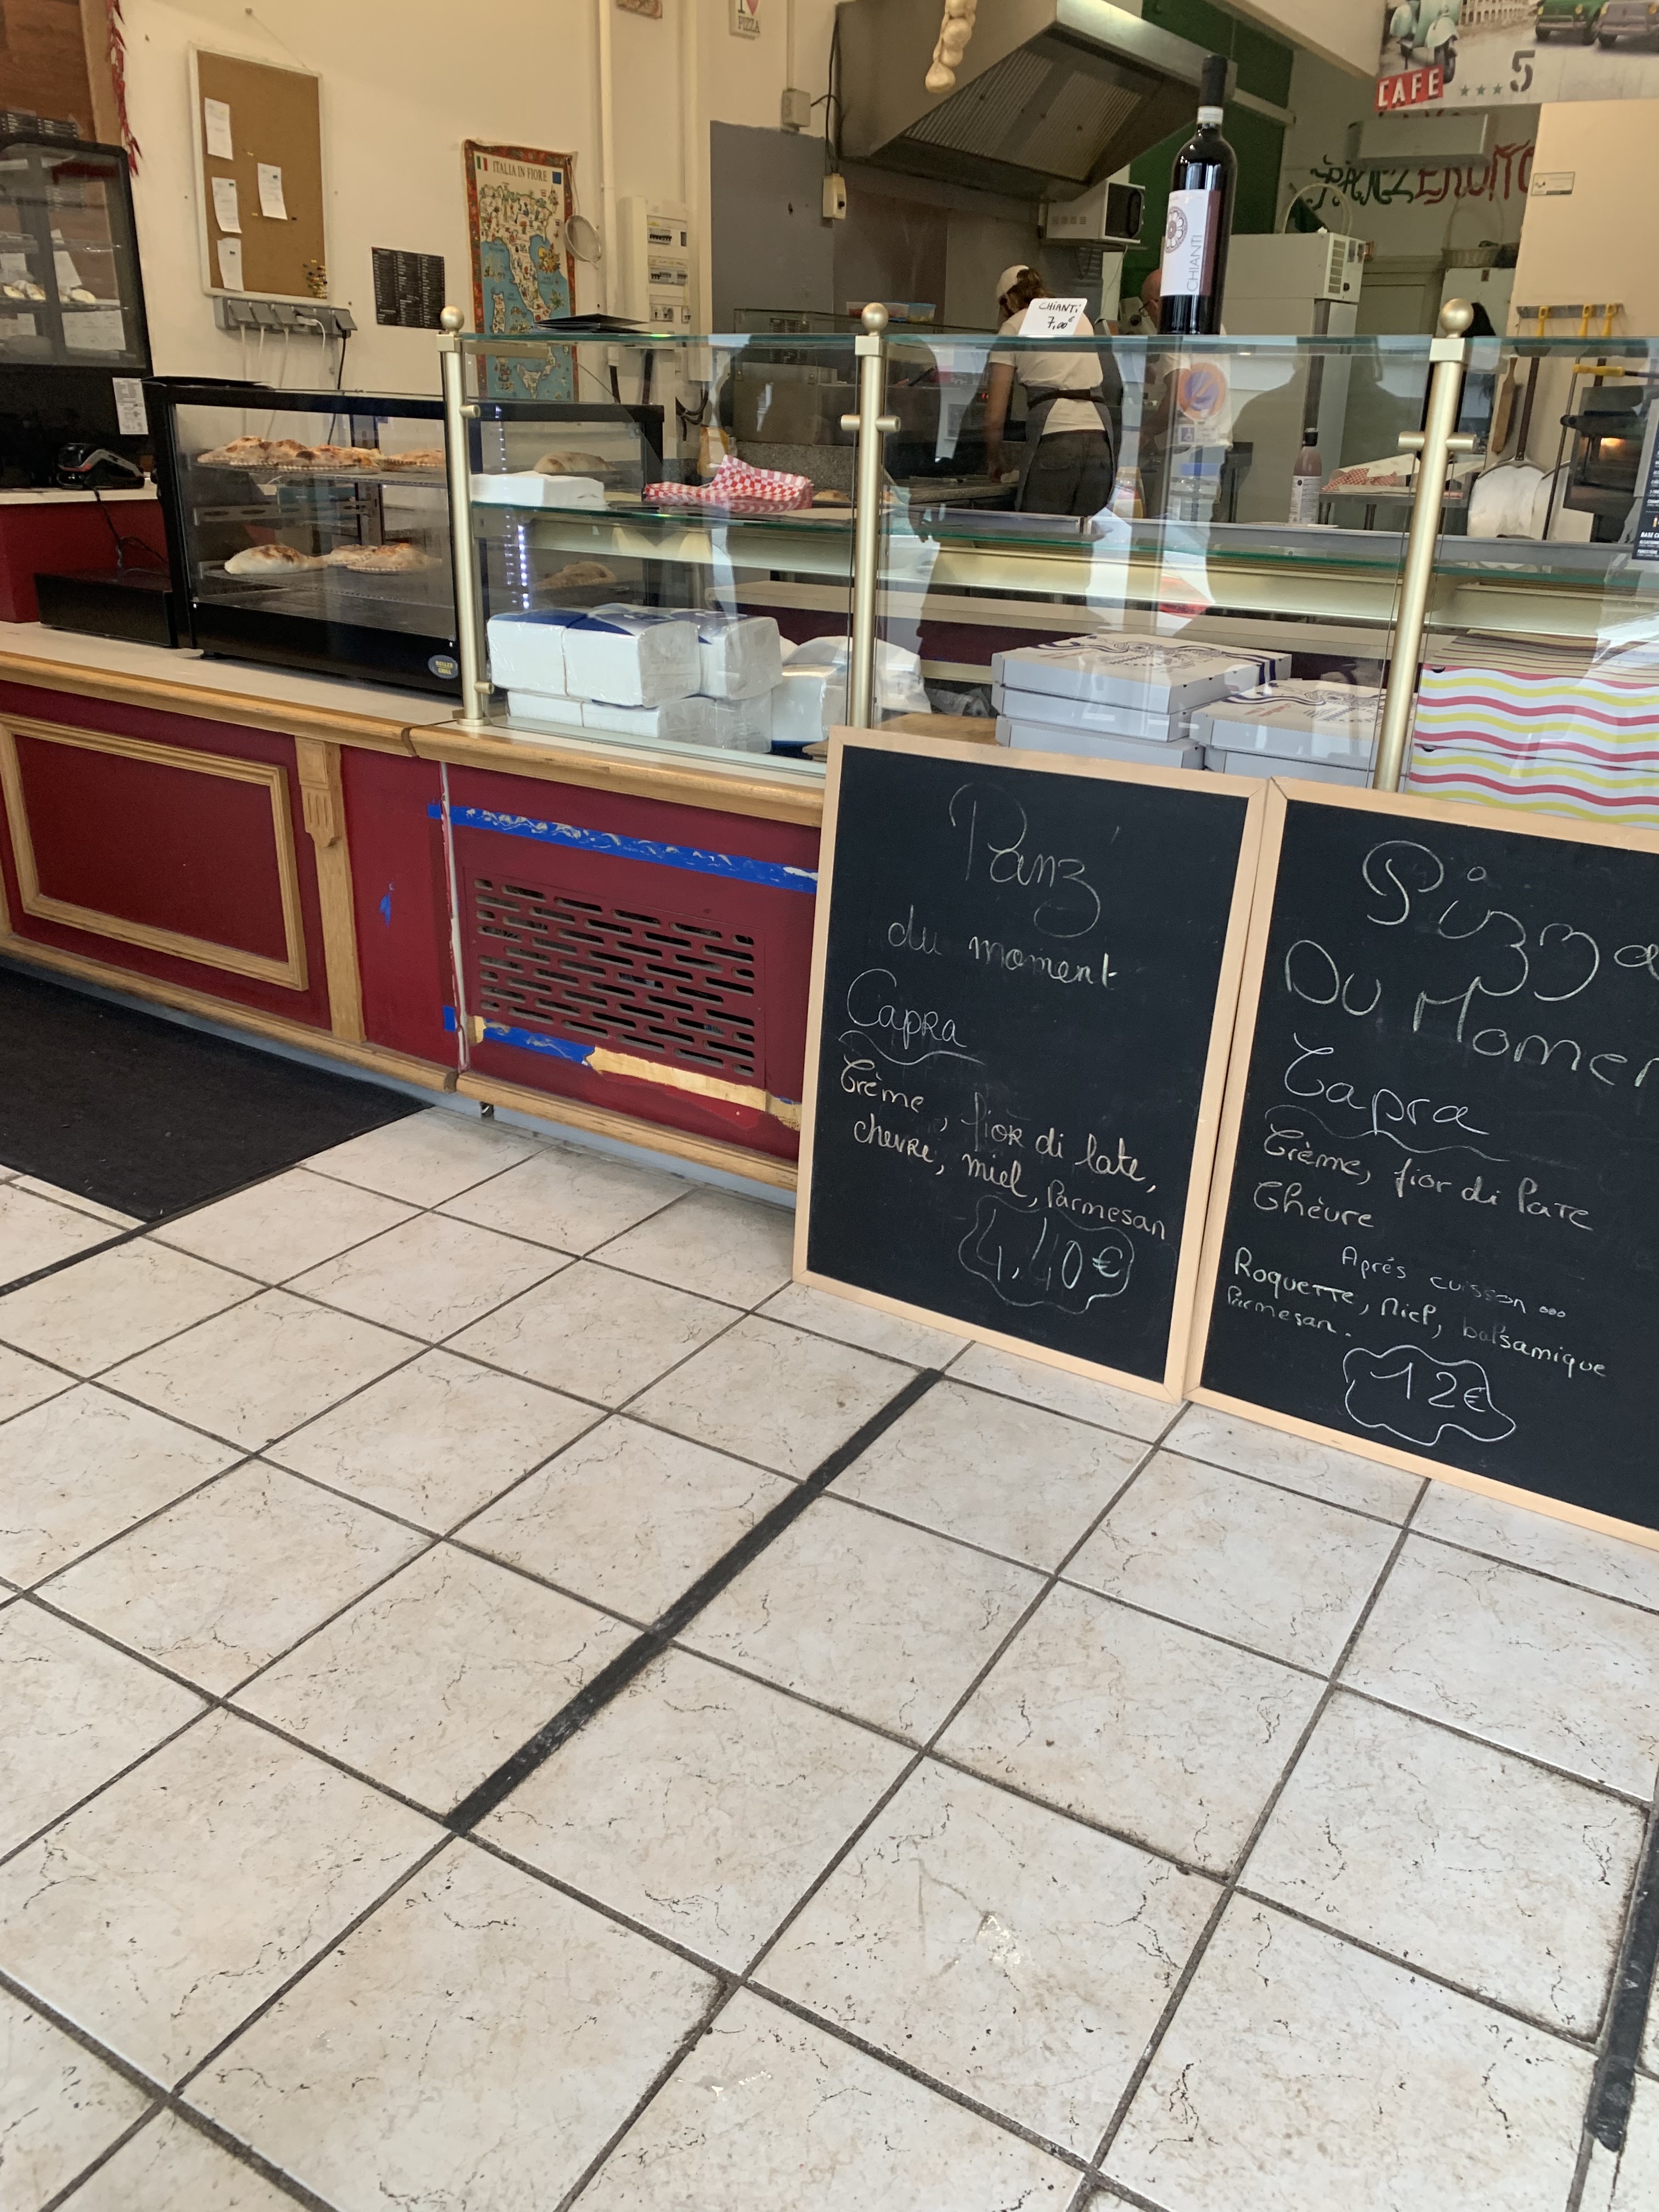 I
PIZZA
CAFE
5
ITALIA IN FIORE
PANZEROTTO
CHIANTI
CHIANTI
7,00€
Panz'
du moment
Capra
Crème, fior di late,
chevre, miel, Parmesan
4,40€
Pizza
Du Momen
Capra
Crème, fior di late
Chèvre
Après cuisson ...
Roquette, Miel, balsamique
Parmesan.
12€